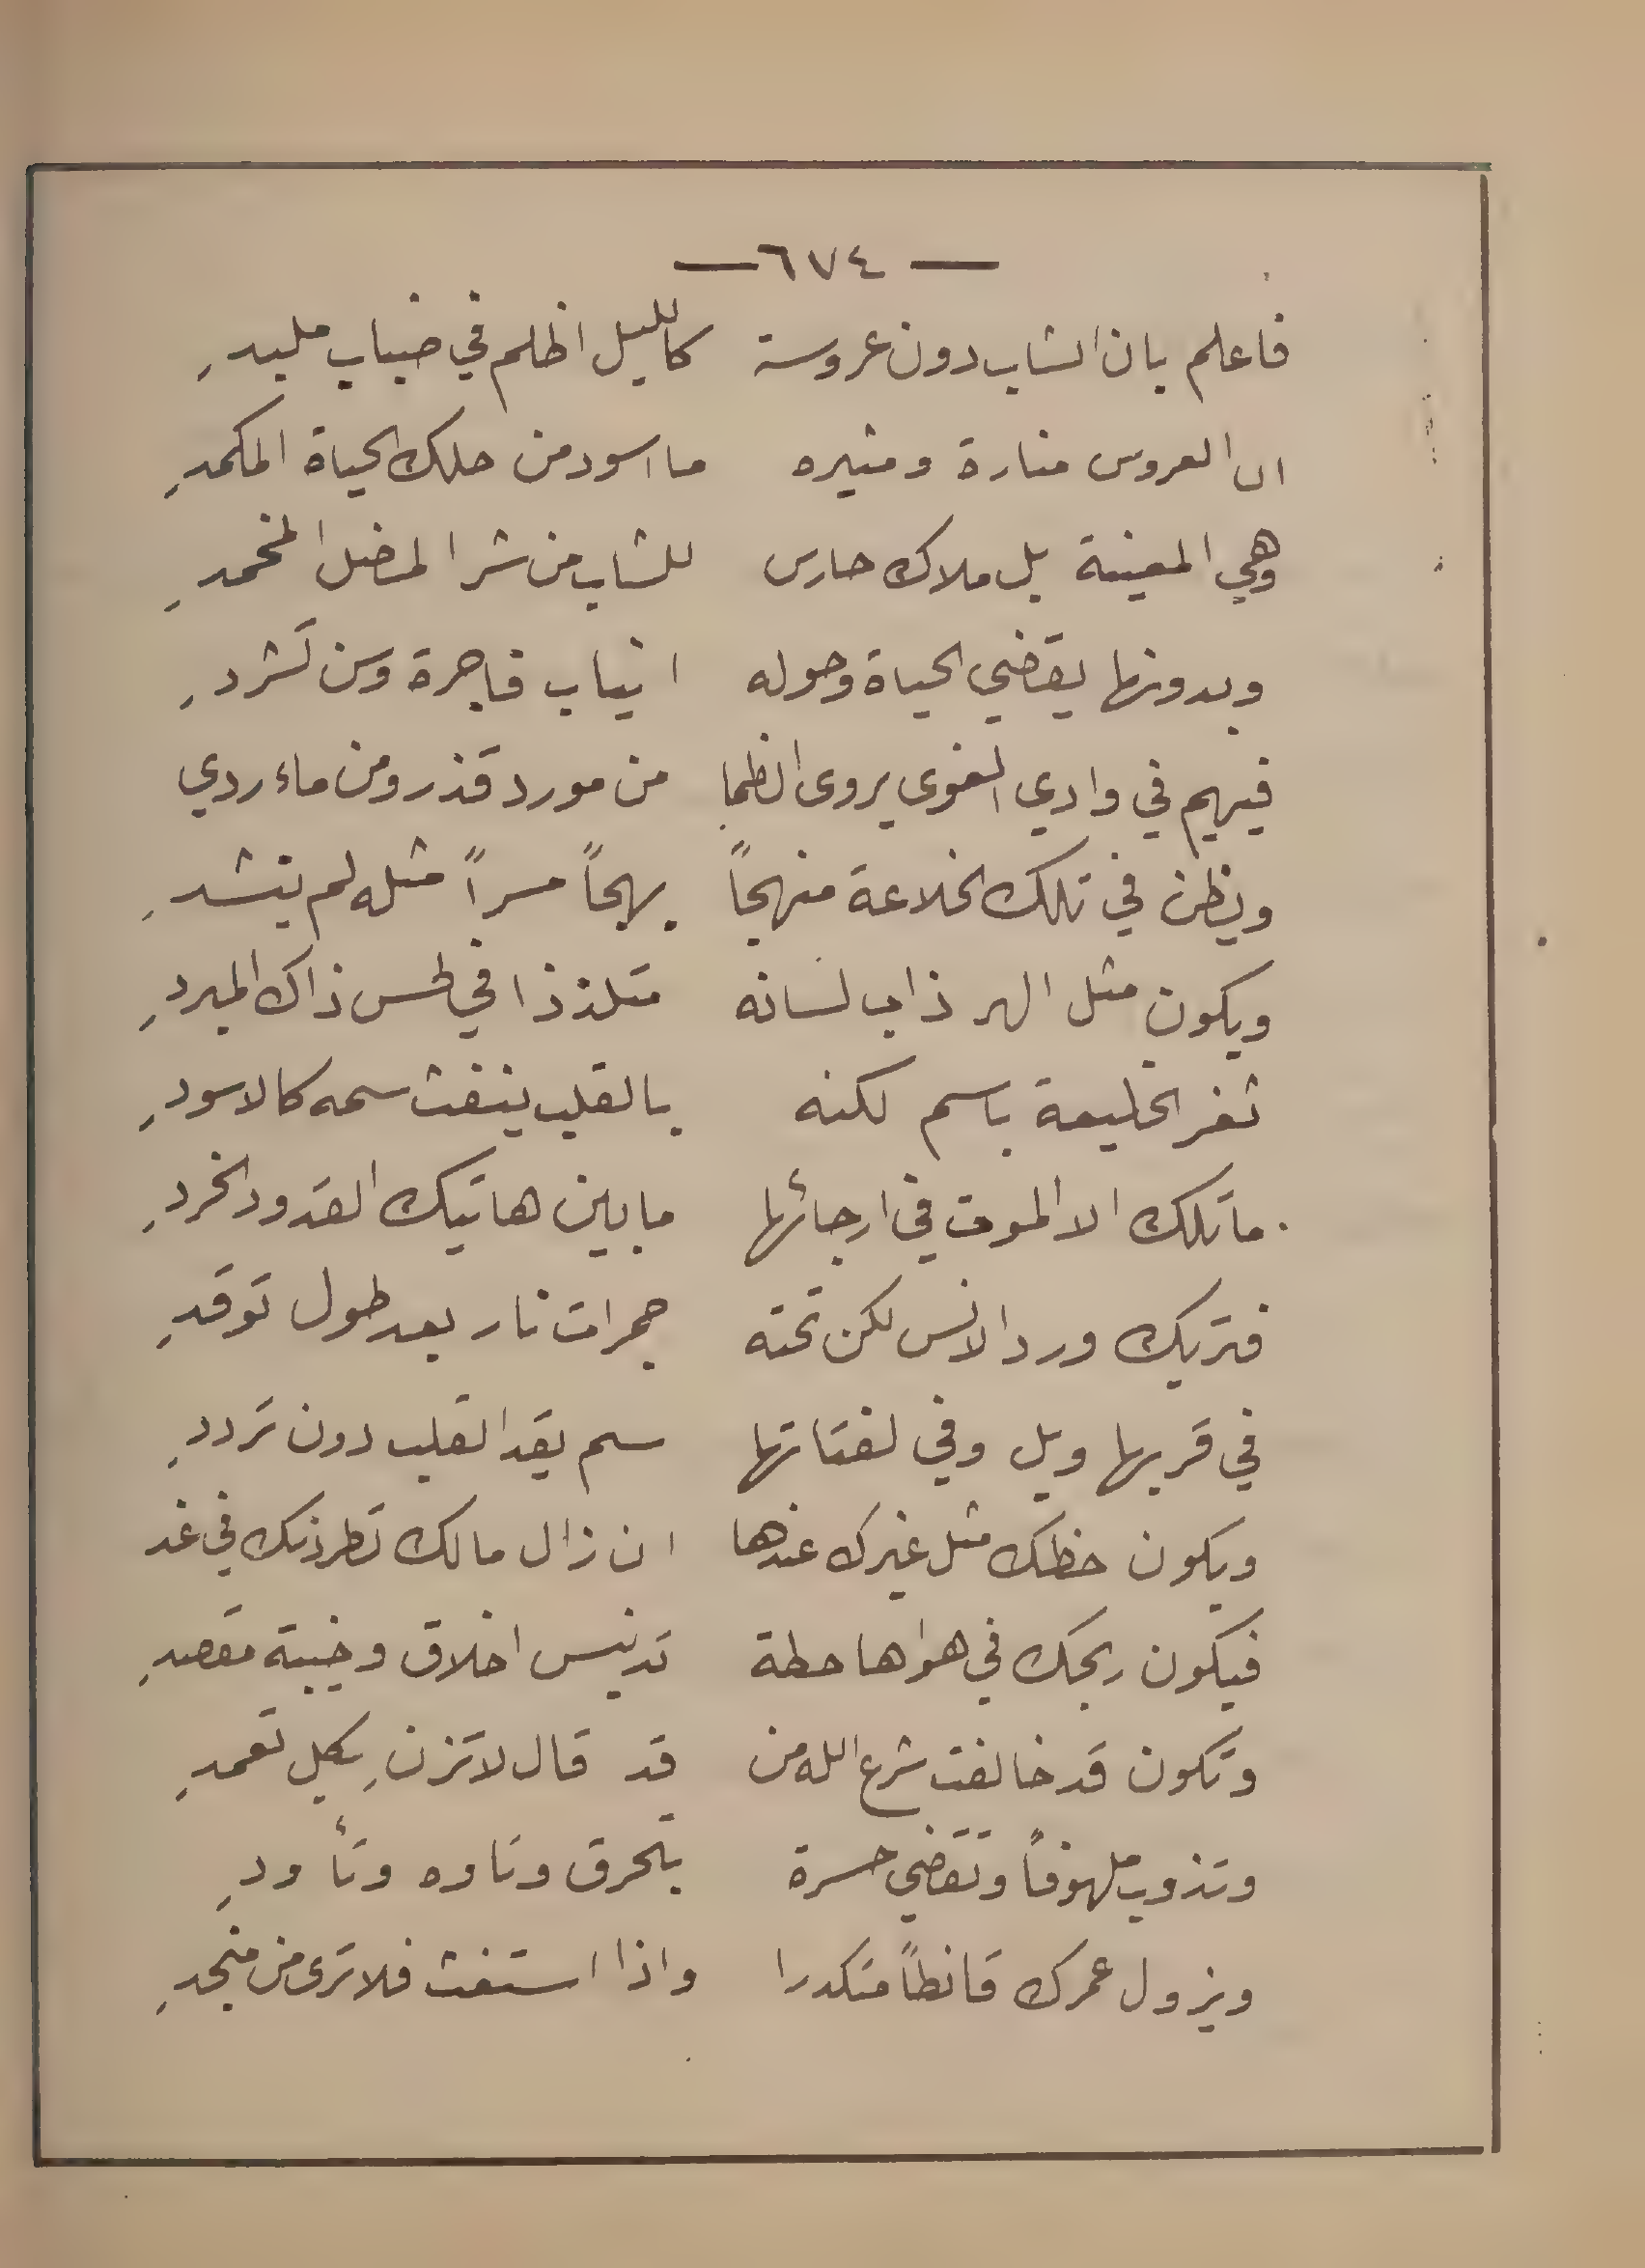 — ٦٧٤ —
فاعلم بان الشاب دون عروسة كالليل اظلم في ضباب ملبدِ
ان العروس منارة ومنيره ما اسود من حلك الحياة المكمدِ
وهي المعينة بل ملاك حارس للشاب من شر المضل المخمدِ
وبدونها يقضي الحياة وحوله انياب فاجرة ومن تشردِ
فيهيم في وادي الغوى يروى الظما من مورد قذر ومن ماء ردي
ويظن في تلك الخلاعة منهجاً بهجاً مسراً مثله لم ينشدِ
ويكون مثل الهر ذاب لسانه متلذذا في لحس ذاك المبردِ
ثغر الخليعة باسم لكنه بالقلب ينفث سمه كالاسودِ
ما تلك الا الموت في ارجائها ما بين هاتيك القدود الخردِ
فتريك ورد الانس لكن تحته جمرات نار بعد طول توقدِ
في قربها ويل وفي لفتاتها سم يقد القلب دون ترددِ
ويكون حظك مثل غيرك عندها ان زال مالك تطرذنك في غد
فيكون ربحك في هواها حطة تدنيس اخلاق وخيبة مقصدِ
وتكون قد خالفت شرع الله من قد قال لا تزنِ بكل تعمدِ
وتذوب ملهوفاً وتقضي حسرة بتحرق وتاوه وتأودِ
ويزول عمرك قانطاً متكدرا واذا استغث فلا ترى من منجدِ